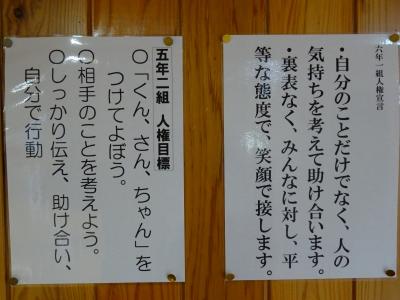 六年一組人権宣言
・自分のことだけでなく、人の
気持ちを考えて助け合います。
・裏表なく、みんなに対し、平
等な態度で、笑顔で接します。
五年二組 人権目標
〇「くん、さん、ちゃん」を
つけてよぼう。
〇相手のことを考えよう。
〇しっかり伝え、助け合い、
自分で行動